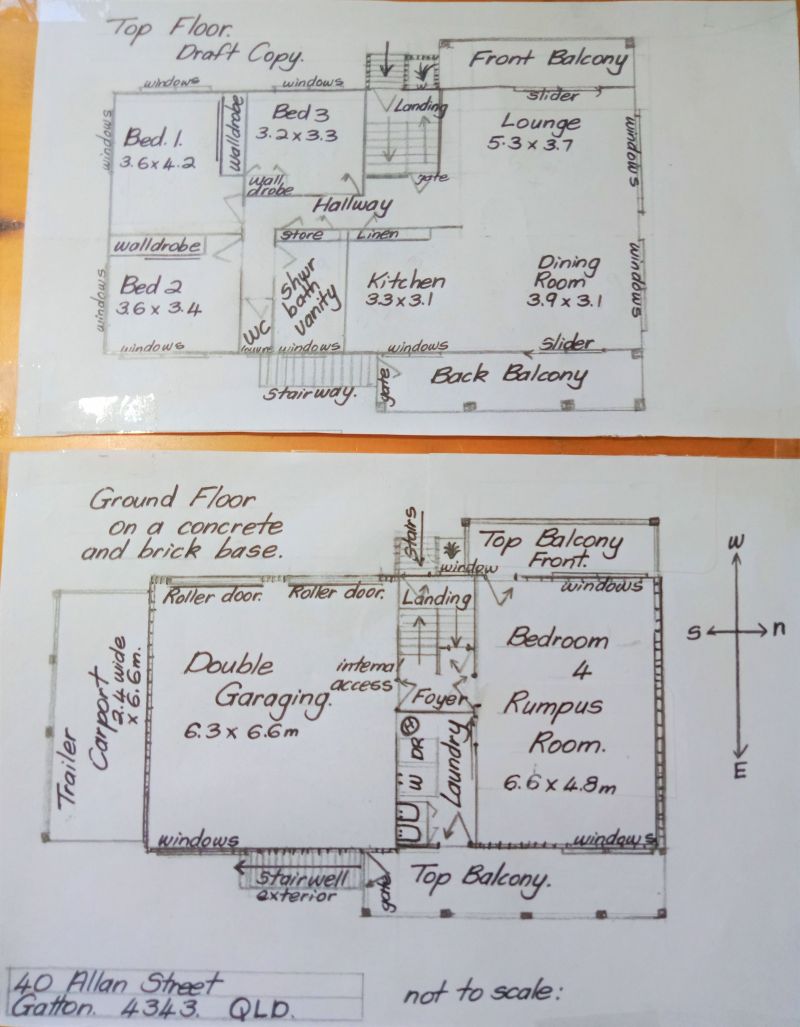 Top Floor.
Draft Copy.
Front Balcony
windows
windows
slider
Landing
windows
Bed. 1.
3.6 x 4.2
walldrobe
Bed 3
3.2 x 3.3
Lounge
5.3 x 3.7
windows
wall
drobe
gate
Hallway
walldrobe
store
Linen
Bed 2
3.6 x 3.4
windows
shwr
bath
vanity
Kitchen
3.3 x 3.1
Dining
Room
3.9 x 3.1
windows
WC
windows
windows
windows
slider
stairway.
gate
Back Balcony
Ground Floor
on a concrete
and brick base.
Stairs
Top Balcony
Front.
window
windows
Roller door.
Roller door.
Landing
W
S
n
E
Trailer
Carport
2.4 wide
x 6.6m.
Double
Garaging.
6.3 x 6.6m
internal
access
Foyer
Bedroom
4
Rumpus
Room.
6.6 x 4.8m
H
DR
W
Laundry
windows
windows
Stairwell
exterior
gate
Top Balcony.
40 Allan Street
Gatton. 4343. QLD.
not to scale: